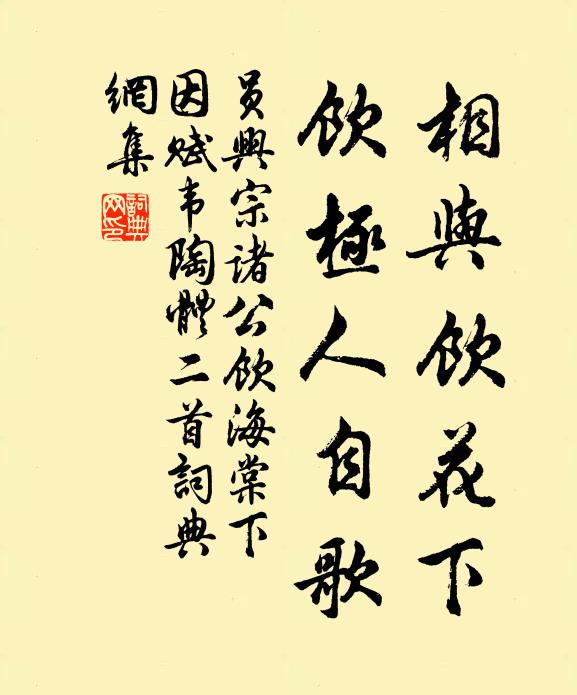 相與飲花下
飲極人自歌
員興宗諸公飲海棠下
因賦韦陶體二首詞典
網集
詞典
网印